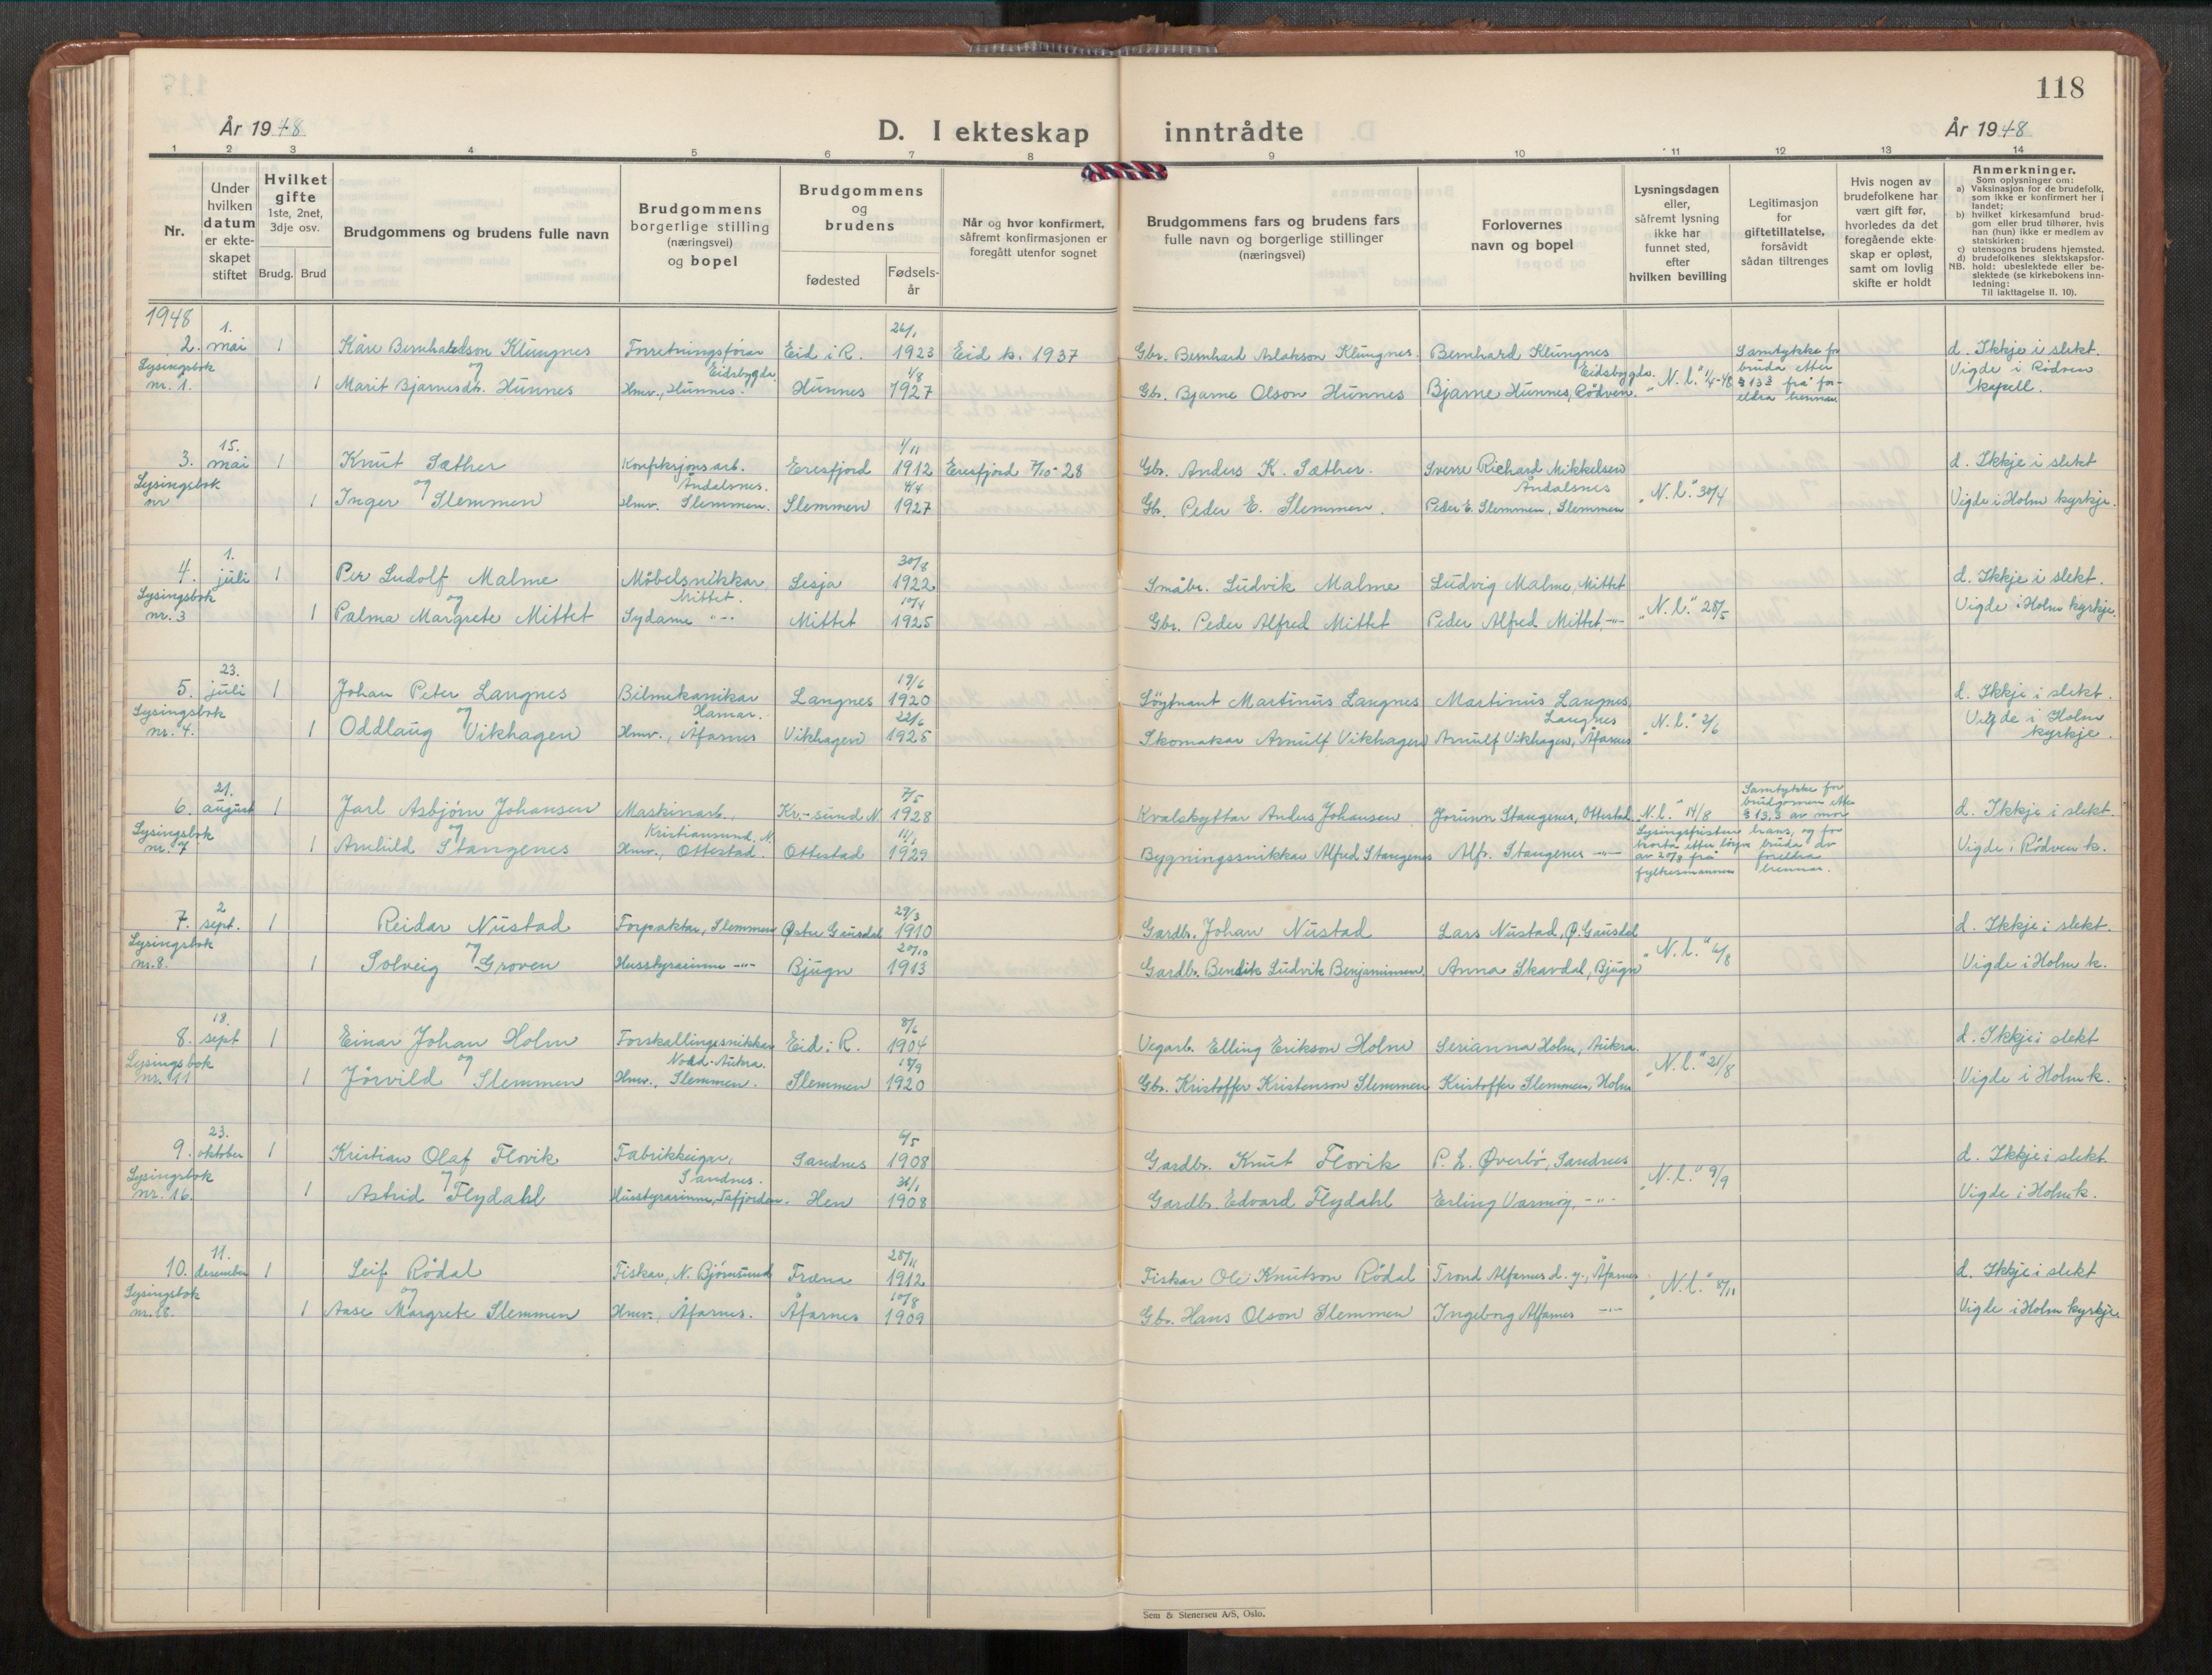 118
År 1948
D. I ekteskap inntrådte
År 1948
1 2 3 4 5 6 7 8 9 10 11 12 13 14
Nr.
Under hvilken datum er ekteskapet stiftet
Hvilket gifte
1ste, 2net, 3dje osv.
Brudg. Brud
Brudgommens og brudens fulle navn
Brudgommens borgerlige stilling (næringsvei) og bopel
Brudgommens og brudens
fødested
Fødsels-år
Når og hvor konfirmert, såfremt konfirmasjonen er foregått utenfor sognet
Brudgommens fars og brudens fars fulle navn og borgerlige stillinger (næringsvei)
Forlovernes navn og bopel
Lysningsdagen eller, såfremt lysning ikke har funnet sted, efter hvilken bevilling
Legitimasjon for giftetillatelse, forsåvidt sådan tiltrenges
Hvis nogen av brudefolkene har vært gift før, hvorledes da det foregående ekteskap er opløst, samt om lovlig skifte er holdt
Anmerkninger.
Som oplysninger om:
a) Vaksinasjon for de brudefolk, som ikke er konfirmert her i landet;
b) hvilket kirkesamfund brudgom eller brud tilhører, hvis han (hun) ikke er medlem av statskirken;
c) utensogns brudens hjemsted.
d) brudefolkenes slektskapsforhold: ubeslektede eller beslektede (se kirkebokens innledning:
NB. Til iakttagelse II. 10).
1948
2. 1. mai 1 Kåre Bernhardson Klungnes Forretningsførar Eidsbygda. Eid i R. 26/1 1923 Eid k. 1937 Gbr. Bernhard Aslakson Klungnes. Bernhard Klungnes Eidsbygda. Samtykke for bruda etter § 13 2 frå foreldra hennar d. Ikkje i slekt.
Lysingsbok nr. 1. og 1 Marit Bjarnesdtr. Hunnes Hmv., Hunnes. Hunnes 1/8 1927 Gbr. Bjarne Olson Hunnes Bjarne Hunnes, Rødven. "N. l." 1/4-48 Vigde i Rødven kapell.
3. 15. mai 1 Knut Sæther Konfeksjonsarb. Åndalsnes. Eresfjord 1/11 1912 Eresfjord 7/10-28 Gbr. Anders K. Sæther. Sverre Richard Mikkelsen Åndalsnes d. Ikkje i slekt
Lysingsbok nr og 1 Inger Slemmen Hmv. Slemmen. Slemmen 4/4 1927 Gbr. Peder E. Slemmen. Peder E. Slemmen, Slemmen "N. l." 30/4 Vigde i Holm kyrkje.
4. 1. juli 1 Per Ludolf Malme Møbelsnikkar Mittet. Lesja 30/8 1922 Småbr. Ludvik Malme Ludvig Malme, Mittet d. Ikkje i slekt.
Lysingsbok nr. 3 og 1 Palma Margrete Mittet Sydame -"- Mittet 10/4 1925 Gbr. Peder Alfred Mittet Peder Alfred Mittet, -"- "N. l." 28/5 Vigde i Holm kyrkje.
5. 23. juli 1 Johan Peter Langnes Bilmekanikar Hamar. Langnes 19/6 1920 Løytnant Martinus Langnes Martinus Langnes, Langnes d. Ikkje i slekt.
Lysingsbok nr. 4. og 1 Oddlaug Vikhagen Hmv., Åfarnes Vikhagen 22/6 1925 Skomakar Arnulf Vikhagen Arnulf Vikhagen, Åfarnes "N. l." 2/6 Vigde i Holm kyrkje.
6. 21. august 1 Jarl Asbjørn Johansen Maskinarb., Kristiansund. N. Kr.-sund N. 7/5 1928 Kvalskyttar Anders Johansen Jorunn Stangenes, Ottestad "N. l." 14/8 Samtykke for brudgomen etter § 13,3 av mor hans, og for bruda av foreldra hennar. d. Ikkje i slekt.
Lysingsbok nr. 7 og 1 Arnhild Stangenes Hmv., Ottestad. Ottestad 11/1 1929 Bygningssnikkar Alfred Stangenes Alfr. Stangenes -"- Lysingsfristen korta etter løyve av 20/8 frå fylkesmannen Vigde i Rødven k.
7. 2 sept. 1 Reidar Nustad Forpaktar, Slemmen Østre Gausdal 29/3 1910 Gardbr. Johan Nustad Lars Nustad, Ø. Gausdal d. Ikkje i slekt.
Lysingsbok nr. 8. og 1 Solveig Groven Husstyrarinne -"- Bjugn 20/10 1913 Gardbr. Bendik Ludvik Benjaminsen. Anna Skavdal, Bjugn "N. l." 6/8 Vigde i Holm k.
8. 18. sept 1 Einar Johan Holm Forskallingssnikkar Nord-Aukra. Eid i R. 8/6 1904 Vegarb. Elling Erikson Holm Serianna Holm, Aukra. d. Ikkje i slekt
Lysingsbok nr. 11 og 1 Jørvild Slemmen Hmv., Slemmen. Slemmen 18/9 1920 Gbr. Kristoffer Kristenson Slemmen Kristoffer Slemmen, Holm "N. l." 21/8 Vigde i Holm k.
9. 23. oktober 1 Kristian Olaf Flovik Fabrikkeigar, Sandnes. Sandnes 6/5 1908 Gardbr. Knut Flovik P. L. Øverbø, Sandnes d. Ikkje i slekt.
Lysingsbok nr. 16. og 1 Astrid Flydahl Husstyrarinne, Tafjorden. Hen 1908 Gardbr. Edvard Flydahl Erling Varmøy, -"- "N. l." 9/9 Vigde i Holm k.
10. 11. desember 1 Leif Rødal Fiskar, N. Bjørnsund Fræna 28/11 1912 Fiskar Ole Knutson Rødal Trond Alfarnes d. y., Åfarnes d. Ikkje i slekt
Lysingsbok nr. 18. og 1 Aase Margrete Slemmen Hmv., Åfarnes. Åfarnes 10/8 1909 Gbr. Hans Olson Slemmen Ingeborg Alfarnes -"- "N. l." 8/11 Vigde i Holm kyrkje.
Sem & Stenersen A/S, Oslo.